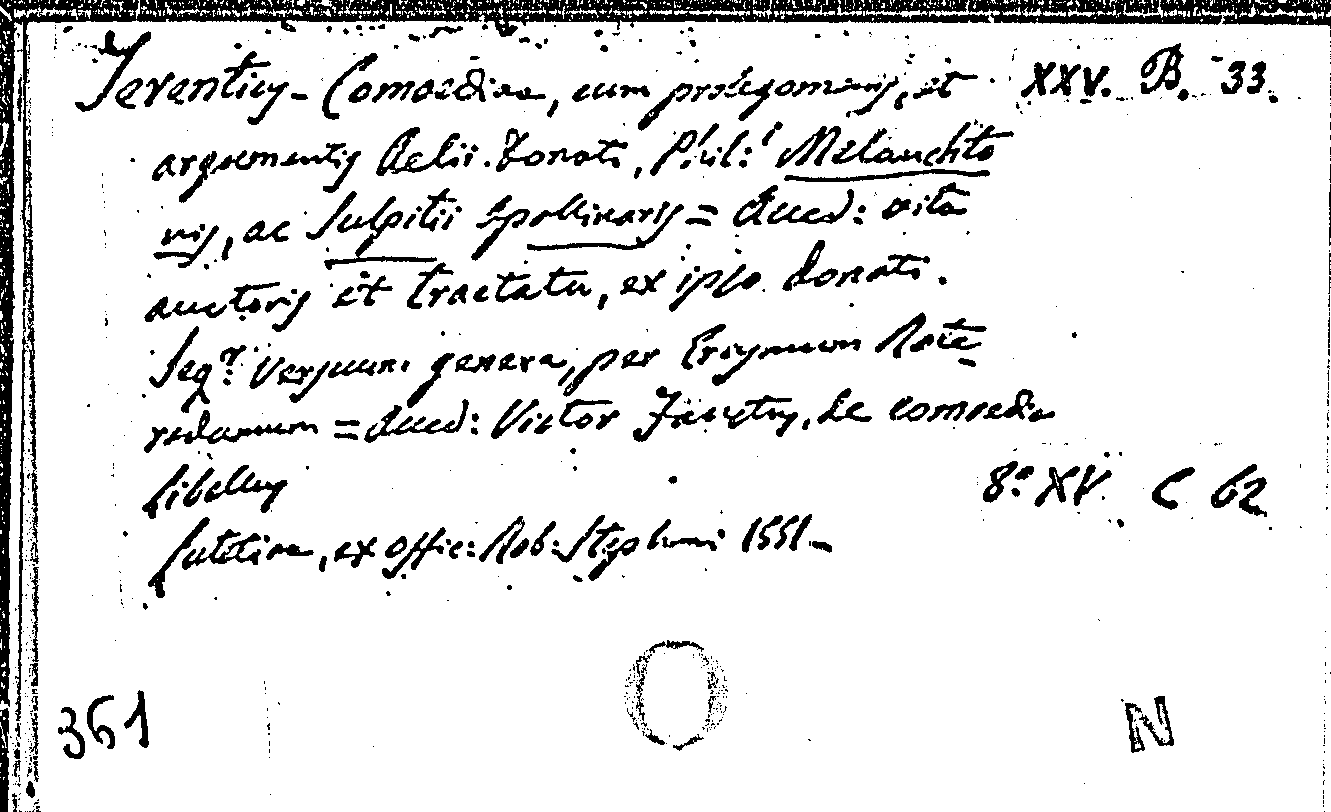 Terentius - Comoediae, cum prolegomenis, et XXV. B. 33.
argumentis Aelii Donati, Phil: Melanchto
nis, ac Sulpitii Apollinaris = Acced: vita
auctoris et tractatu, ex ipso Donati.
Seqr: Versuum genera, per Erasmum Rote
rodamum = Acced: Victor Faustus, de comoedia
libellus
8º XV. C 62
Lutetiae, ex offic: Rob: Stephani 1551 -
361
N